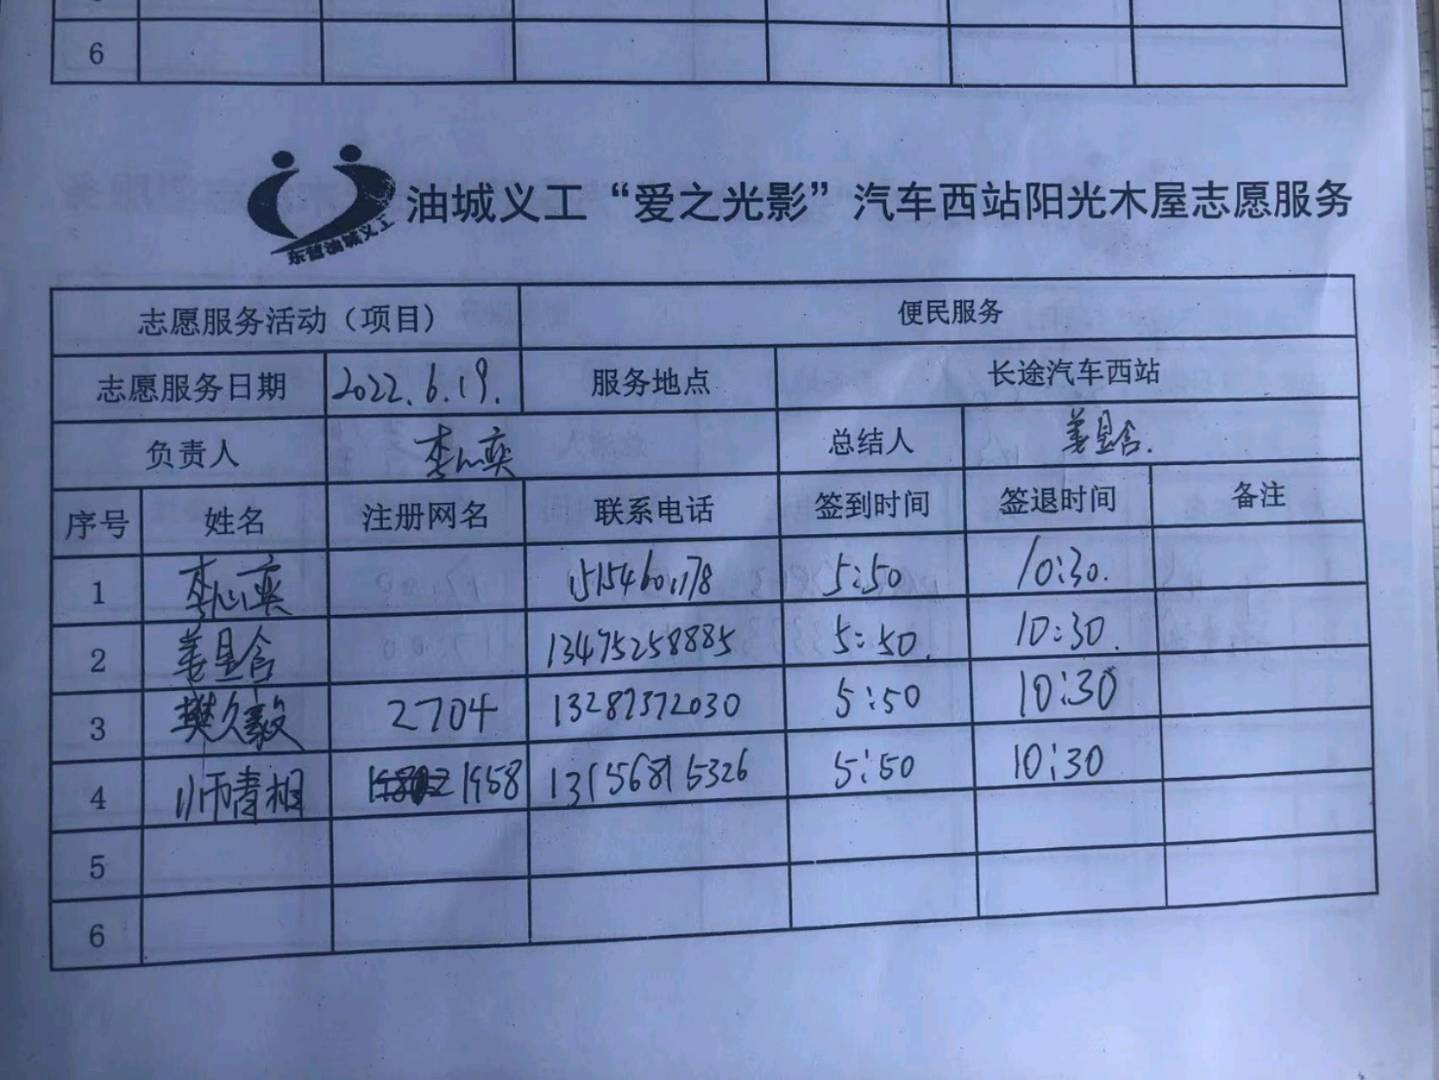 6
东营油城义工
油城义工“爱之光影”汽车西站阳光木屋志愿服务
志愿服务活动（项目） 便民服务
志愿服务日期 2022.6.19. 服务地点 长途汽车西站
负责人 李心奕 总结人 姜昱含.
序号 姓名 注册网名 联系电话 签到时间 签退时间 备注
1 李心奕 5:50 10:30.
2 姜昱含 13475258885 5:50. 10:30.
3 樊久毅 2704 13287372030 5:50 10:30
4 师青相 1958 13156815326 5:50 10:30
5
6